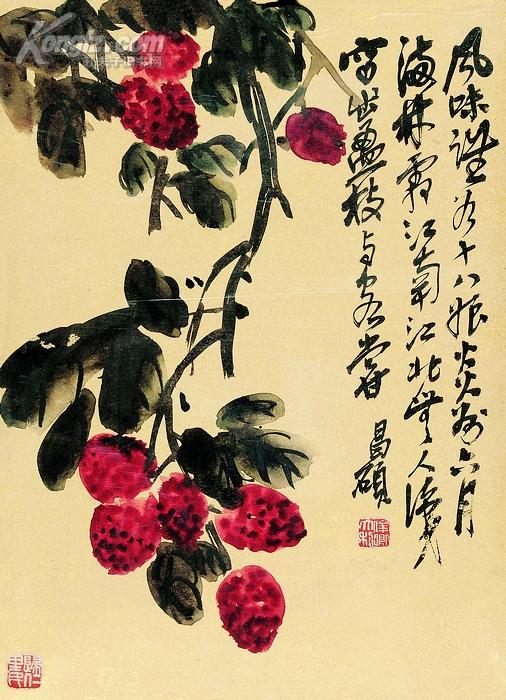 Kongfz.com
孔夫子旧书网
風味誰名十八娘炎州六月
海林霜江南江北無人識
寫出盈枝与客嘗
昌碩
歸仁里民